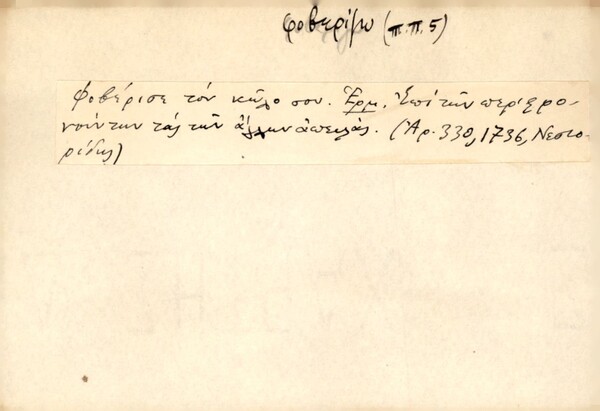 φοβερίζω (π.π. 5)
Φοβέρισε τὸν κῶλο σου. Ἑρμ. Ἐπὶ τῶν περιφρο-
νούντων τὰς τῶν ἄλλων ἀπειλάς. (Ἀρ. 330, 1736, Νεστο-
ρίδης)